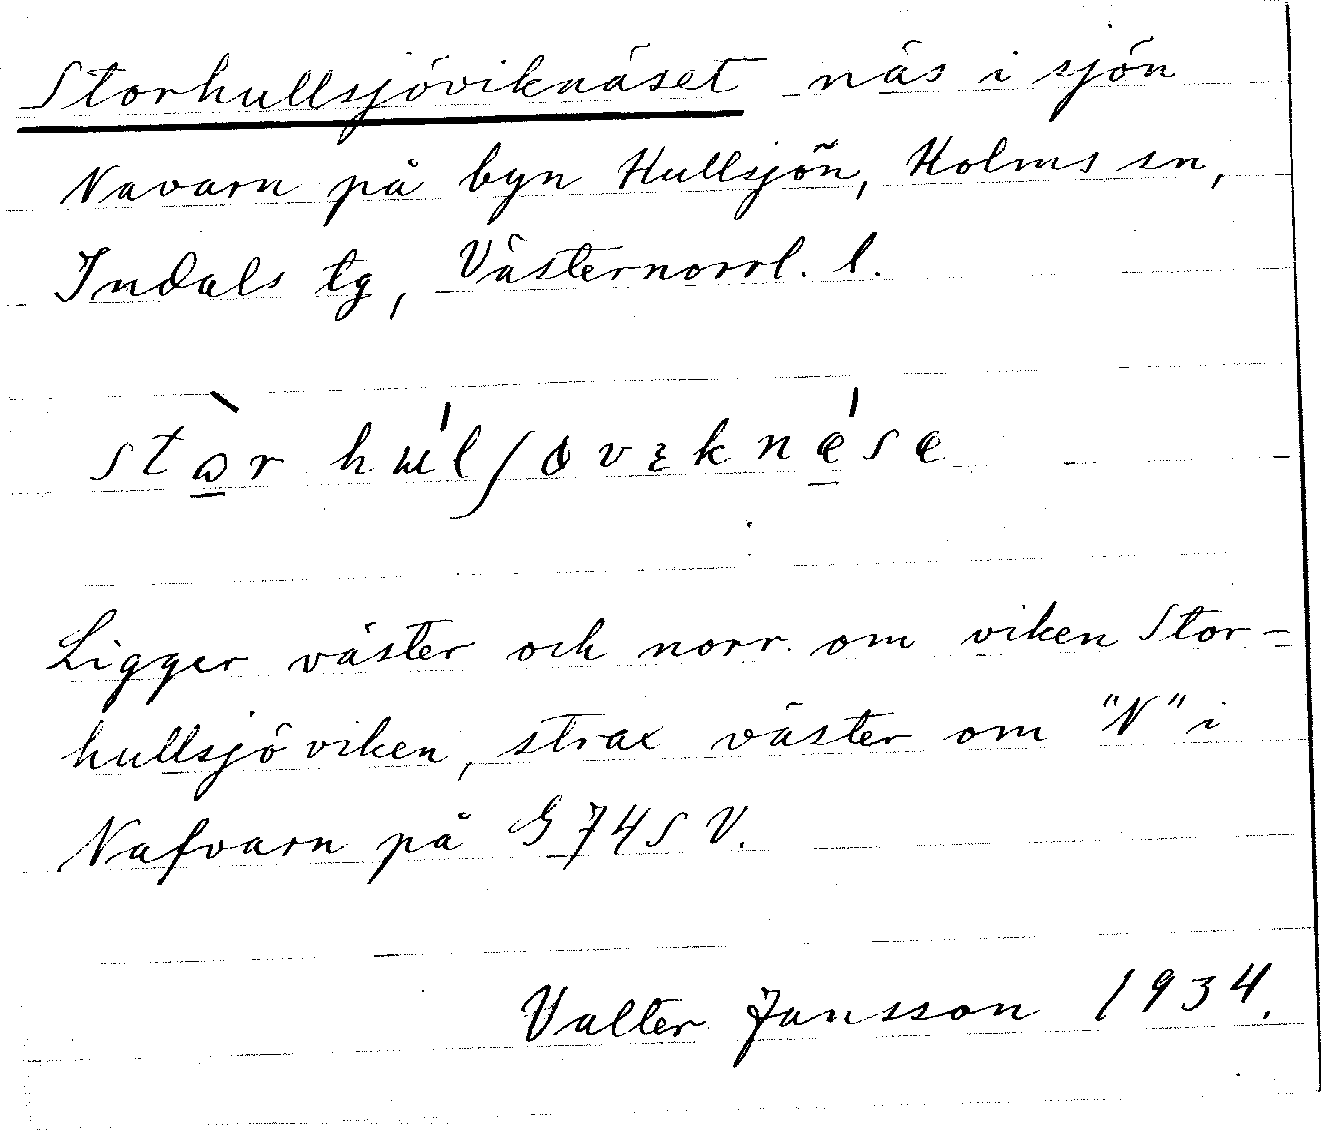 Storhullsjöviknäset näs i sjön
Navarn på byn Hullsjön, Holms sn,
Indals tg, Västernorrl. l.
Ligger väster och norr om viken Stor-
hullsjöviken, strax väster om "N" i
Nafvarn på G 74 S V.
Valter Jansson 1934.